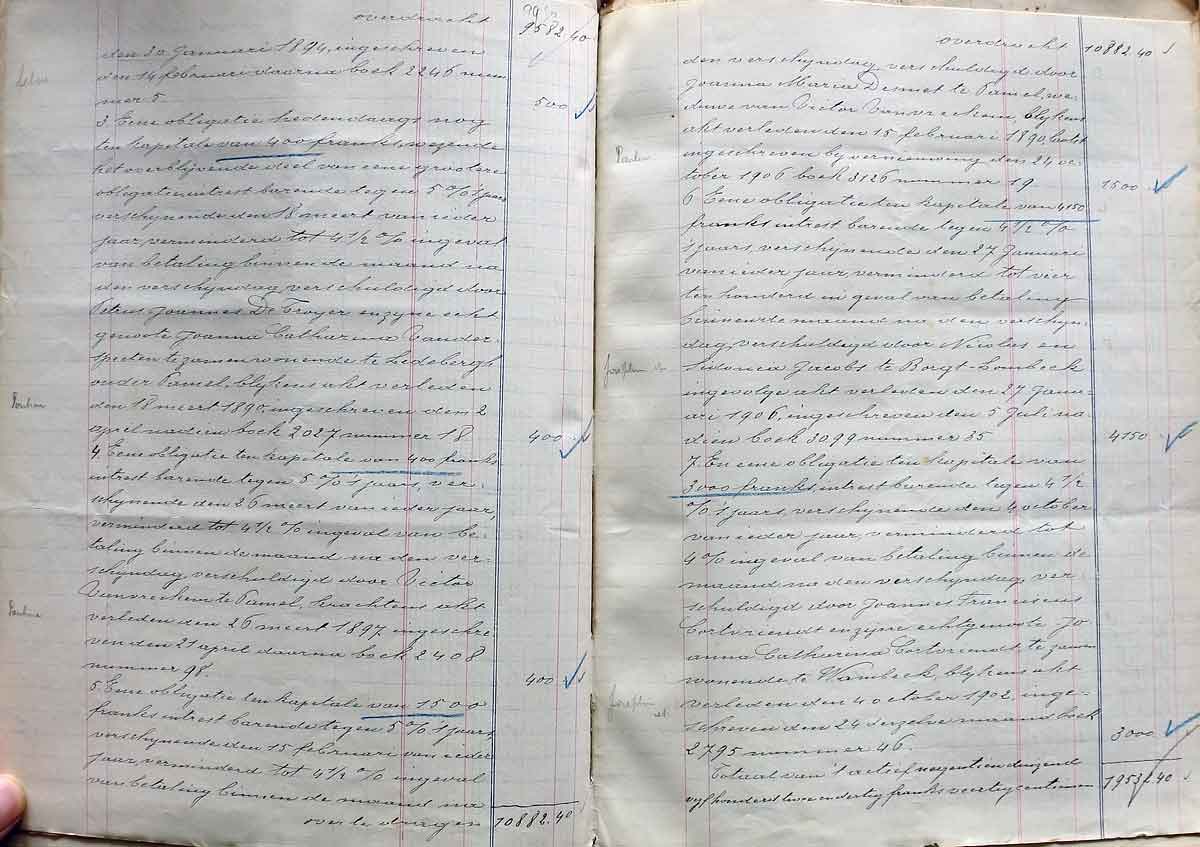 overdracht 9582.40
den 30 Januari 1894, ingeschreven
den 14 februari daarna boek 2246 num
mer 5 500
3 Eene obligatie hedendaags nog
ten kapitale van 400 franks, wezende
het overblijvende deel van eene grootere
obligatie intrest barende tegen 5% 's jaars
verschynende den 18 meert van ieder
jaar, verminderd tot 4 1/2 % ingeval
van betaling binnen de maand na
den verschyndag, verschuldigd door
Petrus Joannes De Troyer en zyne echt
genoote Joanna Catharina Vander-
specten te zamen wonende te Ledebergh
onder Pamel, blykens akt verleden
Pauline
den 18 meert 1890, ingeschreven den 2
april nadien boek 2027 nummer 18 400
4 Eene obligatie ten kapitale van 400 franks
intrest barende tegen 5% 's jaars, ver-
schynende den 26 meert van ieder jaar,
verminderd tot 4 1/2 % ingeval van be-
taling binnen de maand na den ver-
schyndag, verschuldigd door Victor
Vanvreckem te Pamel, krachtens akt
Pauline
verleden den 26 meert 1897 ingeschre
ven den 21 april daarna boek 2408
nummer 98. 400
5 Eene obligatie ten kapitale van 1500
franks intrest barende tegen 5% 's jaars
verschynende den 15 februari van ieder
jaar, verminderd tot 4 1/2 % ingeval
van betaling binnen de maand na
over te dragen 10882.40
overdracht 10882.40
den verschyndag, verschuldigd door
Joanna Maria Desmet te Pamel, we-
duwe van Victor Vanvreckem, blykens
akt verleden den 15 februari 1890, laatst
ingeschreven by vernieuwing den 24 oc-
tober 1906 boek 3126 nummer 19. 1500
6 Eene obligatie ten kapitale van 4150
franks intrest barende tegen 4 1/2 %
's jaars, verschynende den 27 Januari
van ieder jaar, verminderd tot vier
ten honderd in geval van betaling
binnen de maand na den verschyn-
dag, verschuldigd door Nicolas en
Sidonia Jacobs te Borgt-Lombeek
ingevolge akt verleden den 27 Janu-
ari 1906, ingeschreven den 5 Juli na
dien boek 3099 nummer 35 4150
7 En eene obligatie ten kapitale van
3000 franks, intrest barende tegen 4 1/2
% 's jaars, verschynende den 4 october
van ieder jaar, verminderd tot
4% ingeval van betaling binnen de
maand na den verschyndag, ver-
schuldigd door Joannes Franciscus
Cortvriendt en zyne echtgenoote Jo
anna Catharina Cortvriendt te zamen
wonende te Wambeek, blykens akt
verleden den 4 october 1902, inge-
schreven den 24 derzelve maand boek
2795 nummer 46. 3000
Totaal van 't actief negentien duizend
vyfhonderd twee en dertig franks veertig centimen 19532.40